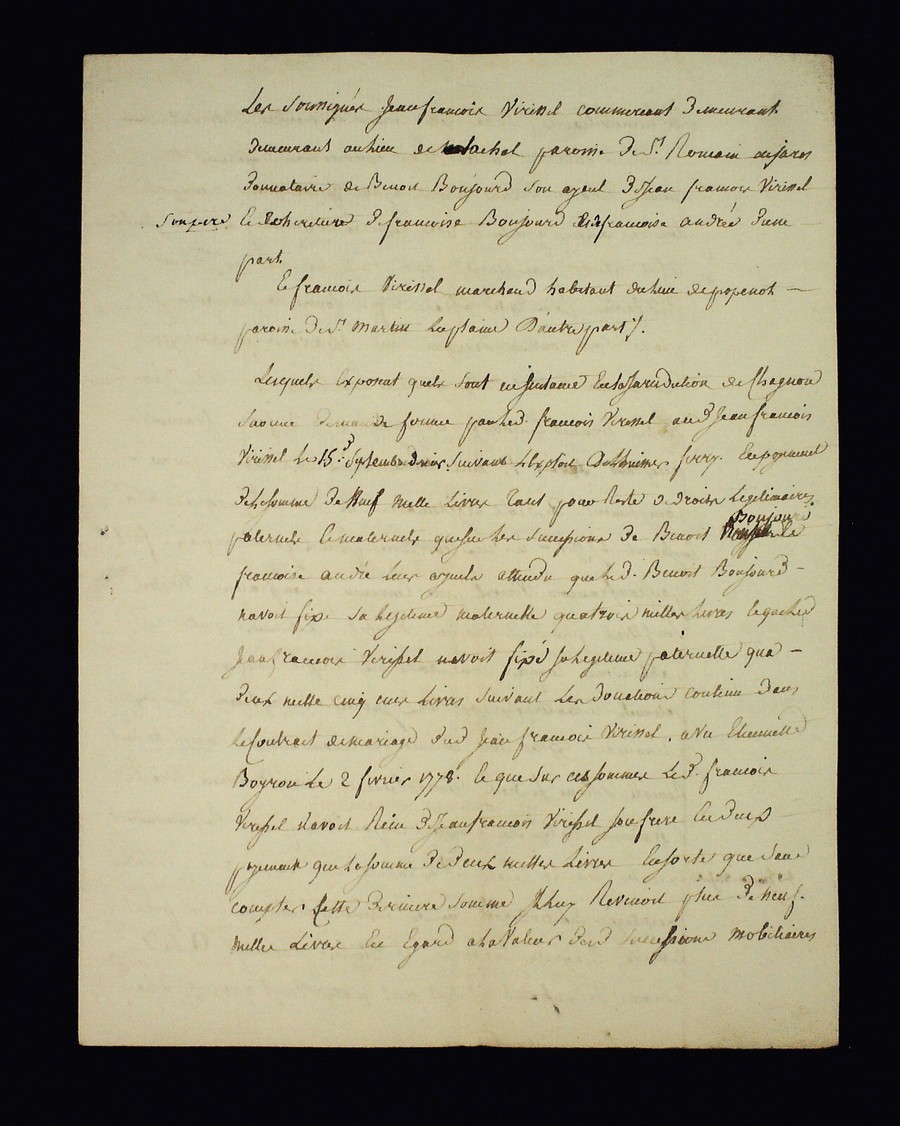 Les Soussignés Jean francois Virissel commercant Demeurant
demeurant au lieu de lachal paroisse De St Romain en jares
Donnataire de Benoit Boujourd son ayeul D Jean francois Virissel
Son pere Et Coheritiere D francoise Boujourd et francoise andrée Dune
part.
Et francois Virissel marchand habitant du lieu de popenot
paroisse De St Martin la plaine D'autre part /.
Lesquels Exposent quels sont en Instance En la Juridiction de Chagnon
Sur une demande formee par led. francois Virissel aud Jean francois
Virissel Le 15e Septembre dernier Suivant L'Exploit En payement
De la somme De Neuf Mille Livres Tant pour Reste de droits Legitimaires
Boujourd
paternels Et maternels que sur Les Successions De Benoit Et
francoise andrée Leurs ayeuls attendu que Led. Benoit Boujourd
navoit fixé Sa Legitime maternelle qua trois milles Livres Et que Led
Jean francois Virissel navoit fixé sa Legitime paternelle qua
Deux mille cinq cens Livres Suivant Les Donations contenu Dans
Le Contrat de mariage Dud Jean francois Virissel, avec Etiennette
Boyron Le 2 fevrier 1778. Et que sur ces sommes Le d. francois
Virissel Navoit Recu D Jean francois Virissel son frere En Deux
payements que La somme De Deux milles Livres En sorte que Sans
compter Cette Derniere Somme Il luy Revenoit plus De Neuf
Milles Livres Eu Egard a La Valeur Desd Successions Mobiliaires